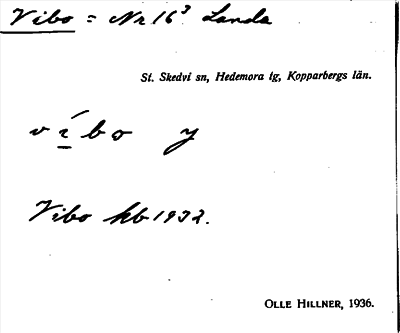 Vibo = Nr 16³ Landa
St. Skedvi sn, Hedemora tg, Kopparbergs län.
v í b o y
Vibo kb 1932.
OLLE HILLNER, 1936.